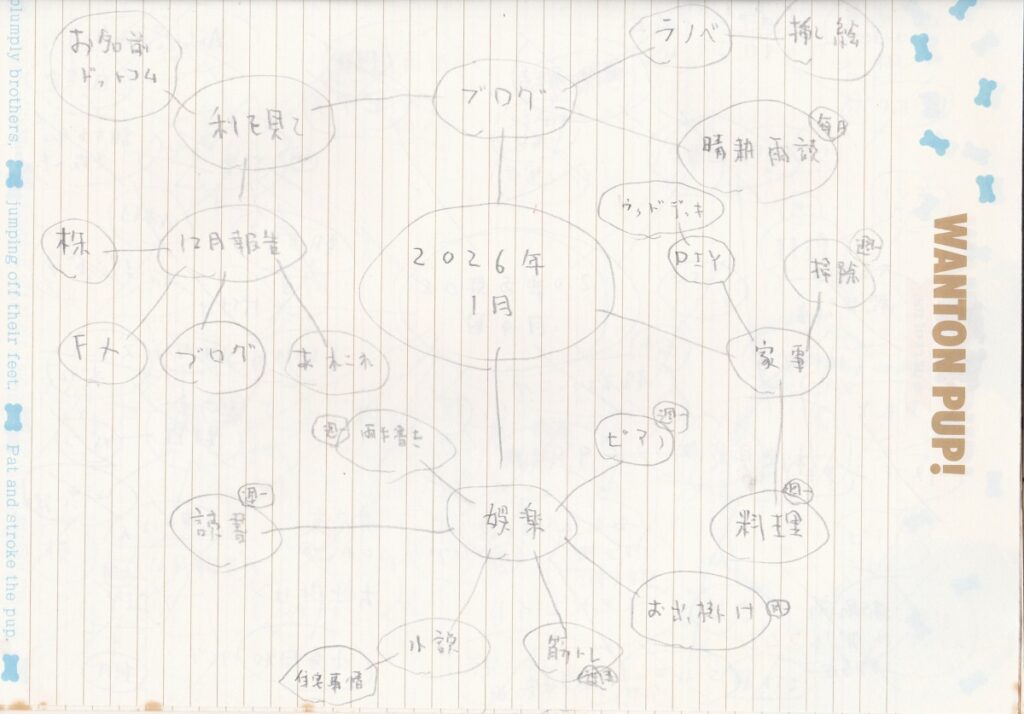 お名前
ドットコム
ブログ
ラノベ
挿し絵
毎月
晴耕雨読
ウッドデッキ
DIY
週一
掃除
株
12月報告
2026年
1月
家事
FX
ブログ
あれこれ
週一
両手書き
週一
ピアノ
週一
読書
娯楽
週一
料理
お出掛け
小説
筋トレ
住宅事情
WANTON PUP!
plumply brothers.
jumping off their feet.
Pat and stroke the pup.